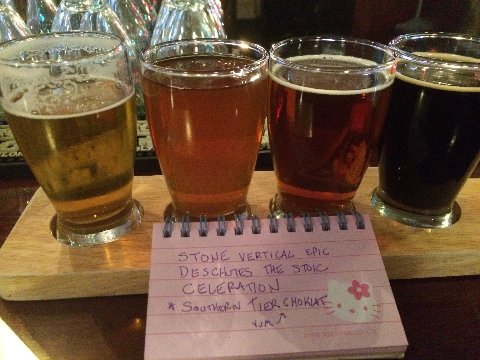 STONE VERTICAL EPIC
DESCHUTES THE STOIC
CELERATION
* SOUTHERN TIER CHOKLAT
YUM